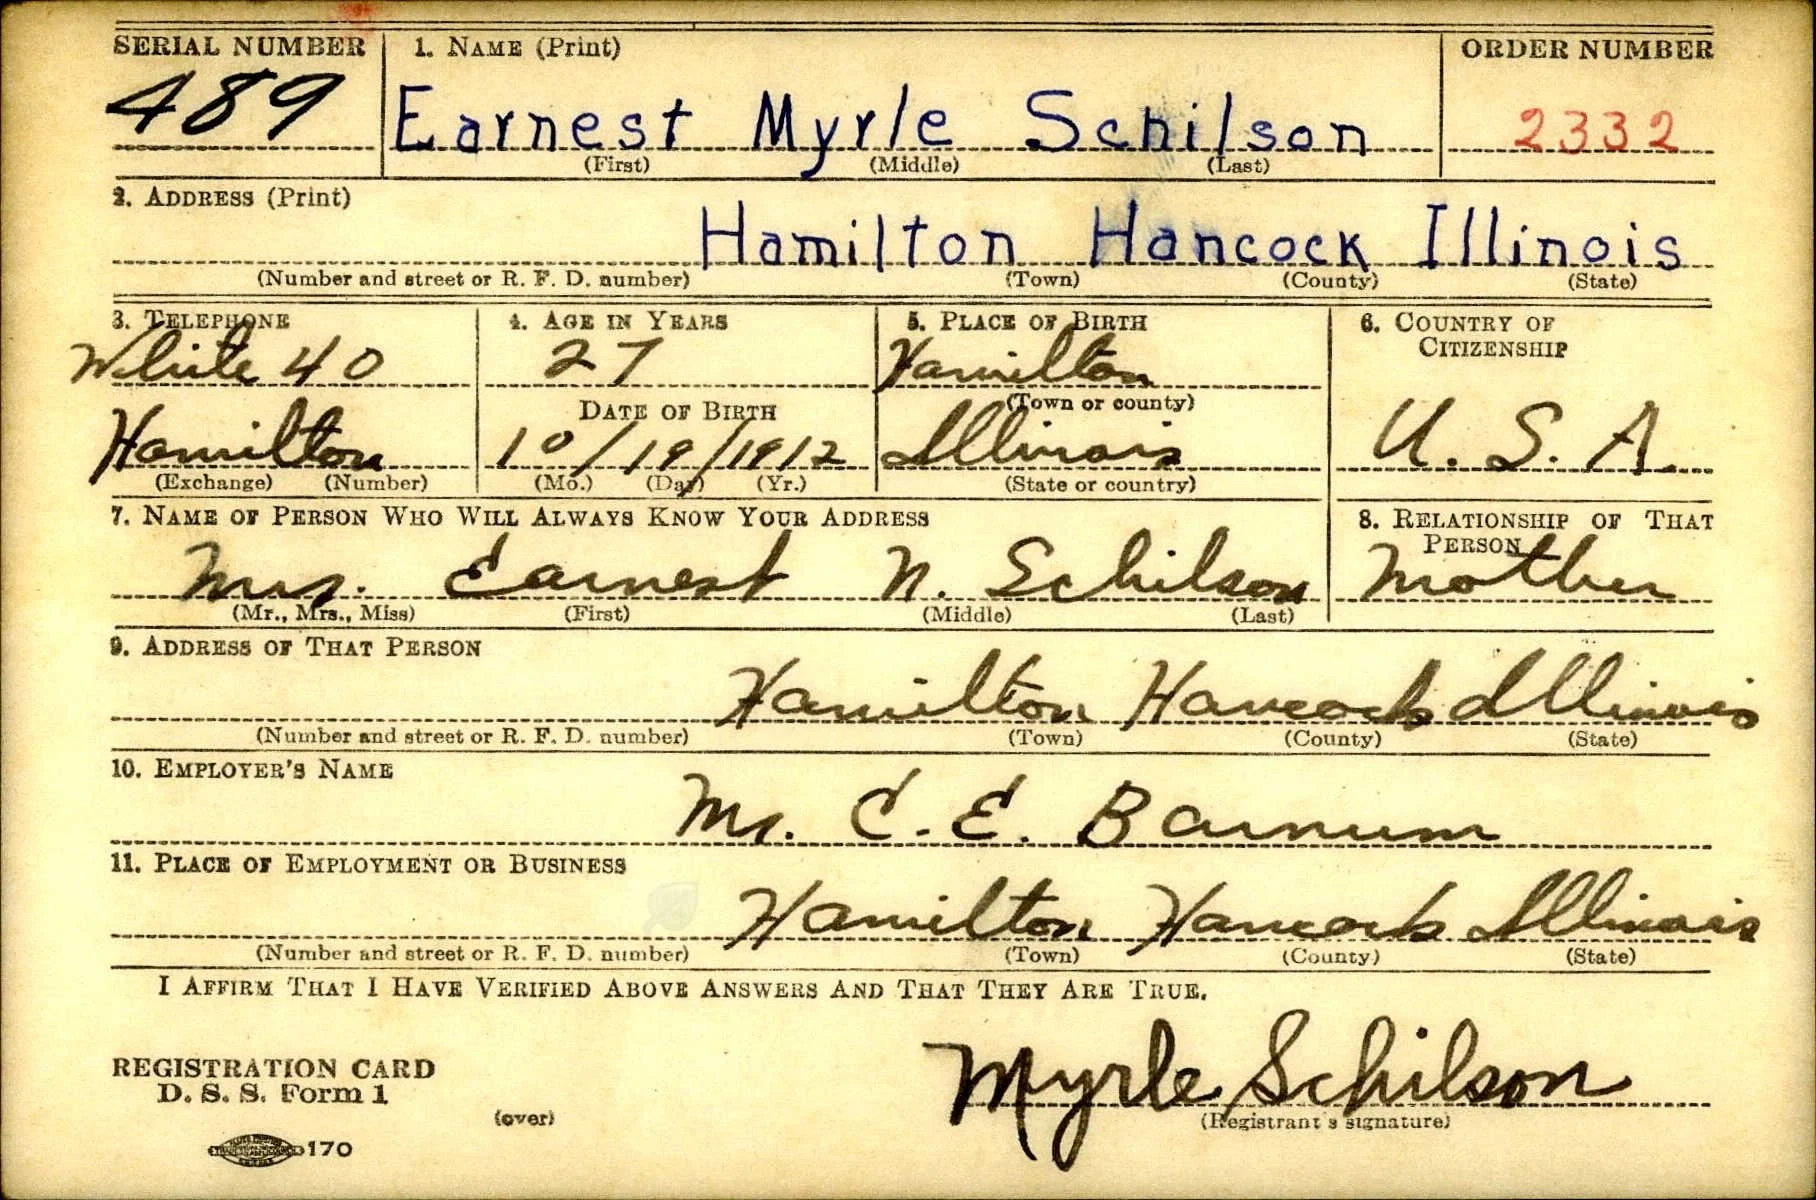 SERIAL NUMBER 1. NAME (Print) ORDER NUMBER
489 Earnest Myrle Schilson 2332
(First) (Middle) (Last)
2. ADDRESS (Print)
Hamilton Hancock Illinois
(Number and street or R. F. D. number) (Town) (County) (State)
3. TELEPHONE 4. AGE IN YEARS 5. PLACE OF BIRTH 6. COUNTRY OF
CITIZENSHIP
White 40 27 Hamilton
DATE OF BIRTH (Town or county)
Hamilton 10/19/1912 Illinois U. S. A.
(Exchange) (Number) (Mo.) (Day) (Yr.) (State or country)
7. NAME OF PERSON WHO WILL ALWAYS KNOW YOUR ADDRESS 8. RELATIONSHIP OF THAT
PERSON
Mrs. Earnest N. Schilson Mother
(Mr., Mrs., Miss) (First) (Middle) (Last)
9. ADDRESS OF THAT PERSON
Hamilton Hancock Illinois
(Number and street or R. F. D. number) (Town) (County) (State)
10. EMPLOYER'S NAME
Mr. C. E. Barnum
11. PLACE OF EMPLOYMENT OR BUSINESS
Hamilton Hancock Illinois
(Number and street or R. F. D. number) (Town) (County) (State)
I AFFIRM THAT I HAVE VERIFIED ABOVE ANSWERS AND THAT THEY ARE TRUE.
Myrle Schilson
REGISTRATION CARD
D. S. S. Form 1
(over) (Registrant's signature)
170